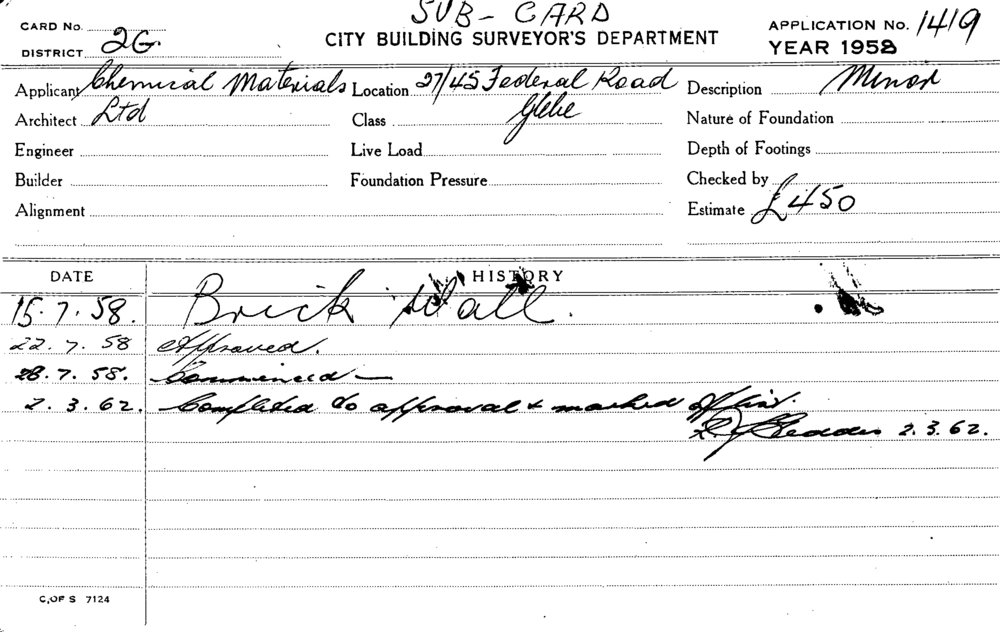 SUB-CARD
CARD No.
CITY BUILDING SURVEYOR'S DEPARTMENT
APPLICATION No. 1419
DISTRICT 2G.
YEAR 1958
Applicant Chemical Materials Location 27/45 Federal Road Description Minor
Architect Ltd Class Glebe Nature of Foundation
Engineer Live Load Depth of Footings
Builder Foundation Pressure Checked by
Alignment Estimate £450
DATE HISTORY
15.7.58. Brick Wall.
22.7.58 Approved.
28.7.58. Commenced —
2.3.62. Completed to approval & marked off
2.3.62.
C. OF S 7124